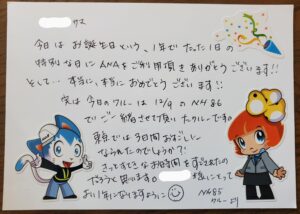 サマ
今日は お誕生日という、1年で たった1日の
特別な日に ANAを ご利用頂き ありがとう ございます!!
そして… 本当に、本当に おめでとう ございます!!
実は 今日の クルーは 12/9 の NH86
で ご一緒させて頂いた クルーです。
東京では 3日間 お過ごしに
なられたのでしょうか?!
きっと すてきな お時間を すごされたの
だろうと 思います。 様にとって
よい1年になりますように
NH85
クルーより